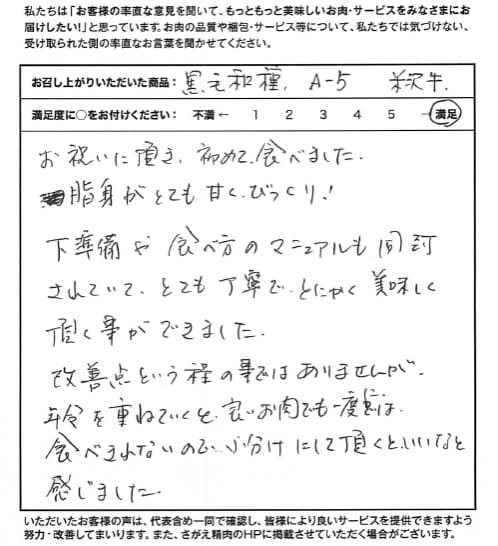 私たちは「お客様の率直な意見を聞いて、もっともっと美味しいお肉・サービスをみなさまにお
届けしたい！」と思っています。お肉の品質や梱包・サービス等について、私たちでは気づけない、
受け取られた側の率直なお言葉を聞かせてください。
お召し上がりいただいた商品： 黒毛和種、A-5 米沢牛.
満足度に○をお付けください： 不満 ← 1 2 3 4 5 → 満足
お祝いに頂き、初めて食べました.
脂身がとても甘く、びっくり！
下準備や食べ方のマニュアルも同封
されていて、とても丁寧で、とにかく美味しく
頂く事ができました.
改善点という程の事ではありませんが、
年令を重ねていくと、良いお肉でも一度には
食べきれないので、小分けにして頂くといいなと
感じました
いただいたお客様の声は、代表含め一同で確認し、皆様により良いサービスを提供できますよう
努力・改善してまいります。また、さがえ精肉のHPに掲載させていただく場合がございます。